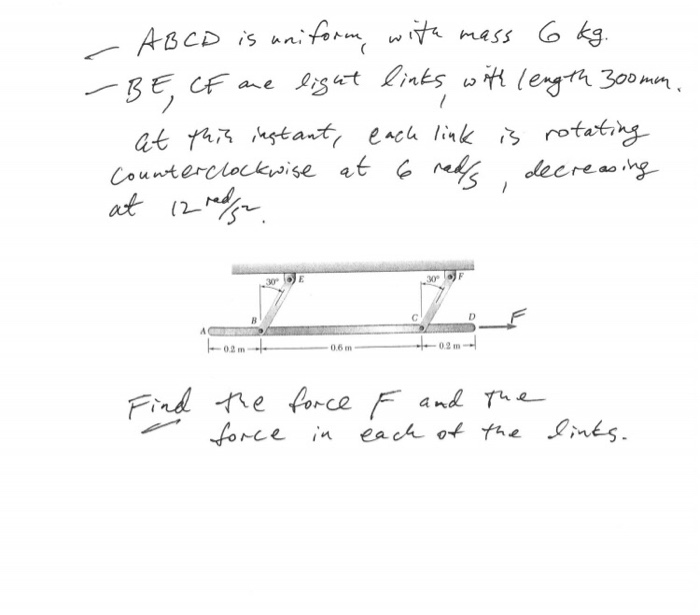 – ABCD is uniform, with mass 6 kg.
– BE, CF are light links, with length 300 mm.
at this instant, each link is rotating
counterclockwise at 6 rad/s, decreasing
at 12 rad/s².
30° E 30° F
A B C D F
0.2 m 0.6 m 0.2 m
Find the force F and the
force in each of the links.